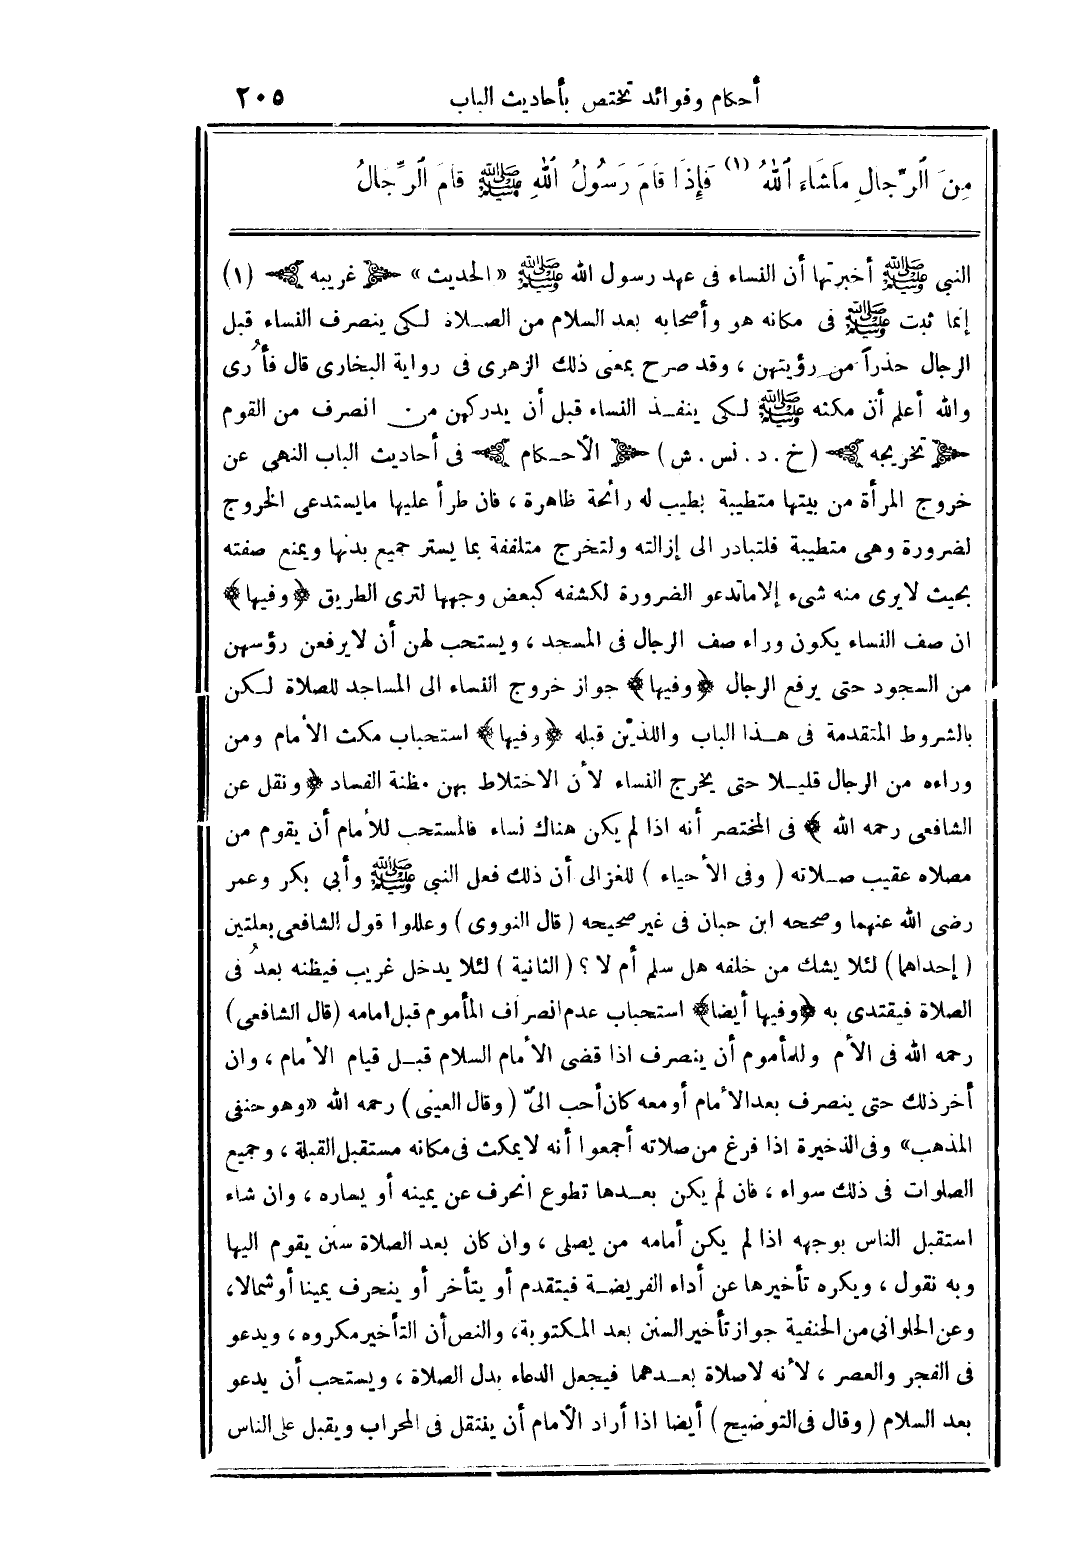 أحكام وفوائد تختص بأحاديث الباب ٢٠٥
مِنَ ٱلرِّجالِ مَاشَاءَ ٱللهُ (١) فَإِذَا قَامَ رَسُولُ ٱللهِ ﷺ قَامَ ٱلرِّجَالُ
النبي ﷺ أخبرتها أن النساء فى عهد رسول الله ﷺ «الحديث» ﴿ غريبه ﴾ (١)
إنما ثبت ﷺ فى مكانه هو وأصحابه بعد السلام من الصـلاة لكى ينصرف النساء قبل
الرجال حذراً من رؤيتهن ، وقد صرح بمعنى ذلك الزهرى فى رواية البخارى قال فأُرى
والله أعلم أن مكثه ﷺ لكى ينفـذ النساء قبل أن يدركهن من انصرف من القوم
﴿ تخريجه ﴾ (خ . د . نس . ش) ﴿ الأحـكام ﴾ فى أحاديث الباب النهى عن
خروج المرأة من بيتها متطيبة بطيب له رائحة ظاهرة ، فان طرأ عليها مايستدعى الخروج
لضرورة وهى متطيبة فلتبادر الى إزالته ولتخرج متلففة بما يستر جميع بدنها ويمنع صفته
بحيث لايرى منه شىء إلاماتدعو الضرورة لكشفه كبعض وجهها لترى الطريق ﴿ وفيها ﴾
ان صف النساء يكون وراء صف الرجال فى المسجد ، ويستحب لهن أن لايرفعن رؤسهن
من السجود حتى يرفع الرجال ﴿ وفيها ﴾ جواز خروج النساء الى المساجد للصلاة لـكن
بالشروط المتقدمة فى هـذا الباب واللذيْن قبله ﴿ وفيها ﴾ استحباب مكث الأمام ومن
وراءه من الرجال قليـلا حتى يخرج النساء لأن الاختلاط بهن مظنة الفساد ﴿ ونقل عن
الشافعى رحمه الله ﴾ فى المختصر أنه اذا لم يكن هناك نساء فالمستحب للأمام أن يقوم من
مصلاه عقيب صـلاته ( وفى الأحياء ) للغزالى أن ذلك فعل النبى ﷺ وأبى بكر وعمر
رضى الله عنهما وصححه ابن حبان فى غير صحيحه ( قال النووى ) وعللوا قول الشافعى بعلتين
( إحداها ) لئلا يشك من خلفه هل سلم أم لا ؟ ( الثانية ) لئلا يدخل غريب فيظنه بعدُ فى
الصلاة فيقتدى به ﴿ وفيها أيضا ﴾ استحباب عدم انصراف المأموم قبل امامه (قال الشافعى)
رحمه الله فى الأم وللمأموم أن ينصرف اذا قضى الأمام السلام قبـل قيام الأمام ، وان
أخر ذلك حتى ينصرف بعد الأمام أو معه كان أحب الىّ ( وقال العينى ) رحمه الله «وهو حنفى
المذهب» وفى الذخيرة اذا فرغ من صلاته أجمعوا أنه لايمكث فى مكانه مستقبل القبلة ، وجميع
الصلوات فى ذلك سواء ، فان لم يكن بعـدها تطوع انحرف عن يمينه أو يساره ، وان شاء
استقبل الناس بوجهه اذا لم يكن أمامه من يصلى ، وان كان بعد الصلاة سنن يقوم اليها
وبه نقول ، ويكره تأخيرها عن أداء الفريضـة فيتقدم أو يتأخر أو ينحرف يمينا أوشمالا،
وعن الحلوانى من الحنفية جواز تأخير السنن بعد المكتوبة، والنص أن التأخير مكروه ، ويدعو
فى الفجر والعصر ، لأنه لاصلاة بعـدهما فيجعل الدعاء بدل الصلاة ، ويستحب أن يدعو
بعد السلام ( وقال فى التوضيح ) أيضا اذا أراد الأمام أن ينتقل فى المحراب ويقبل على الناس